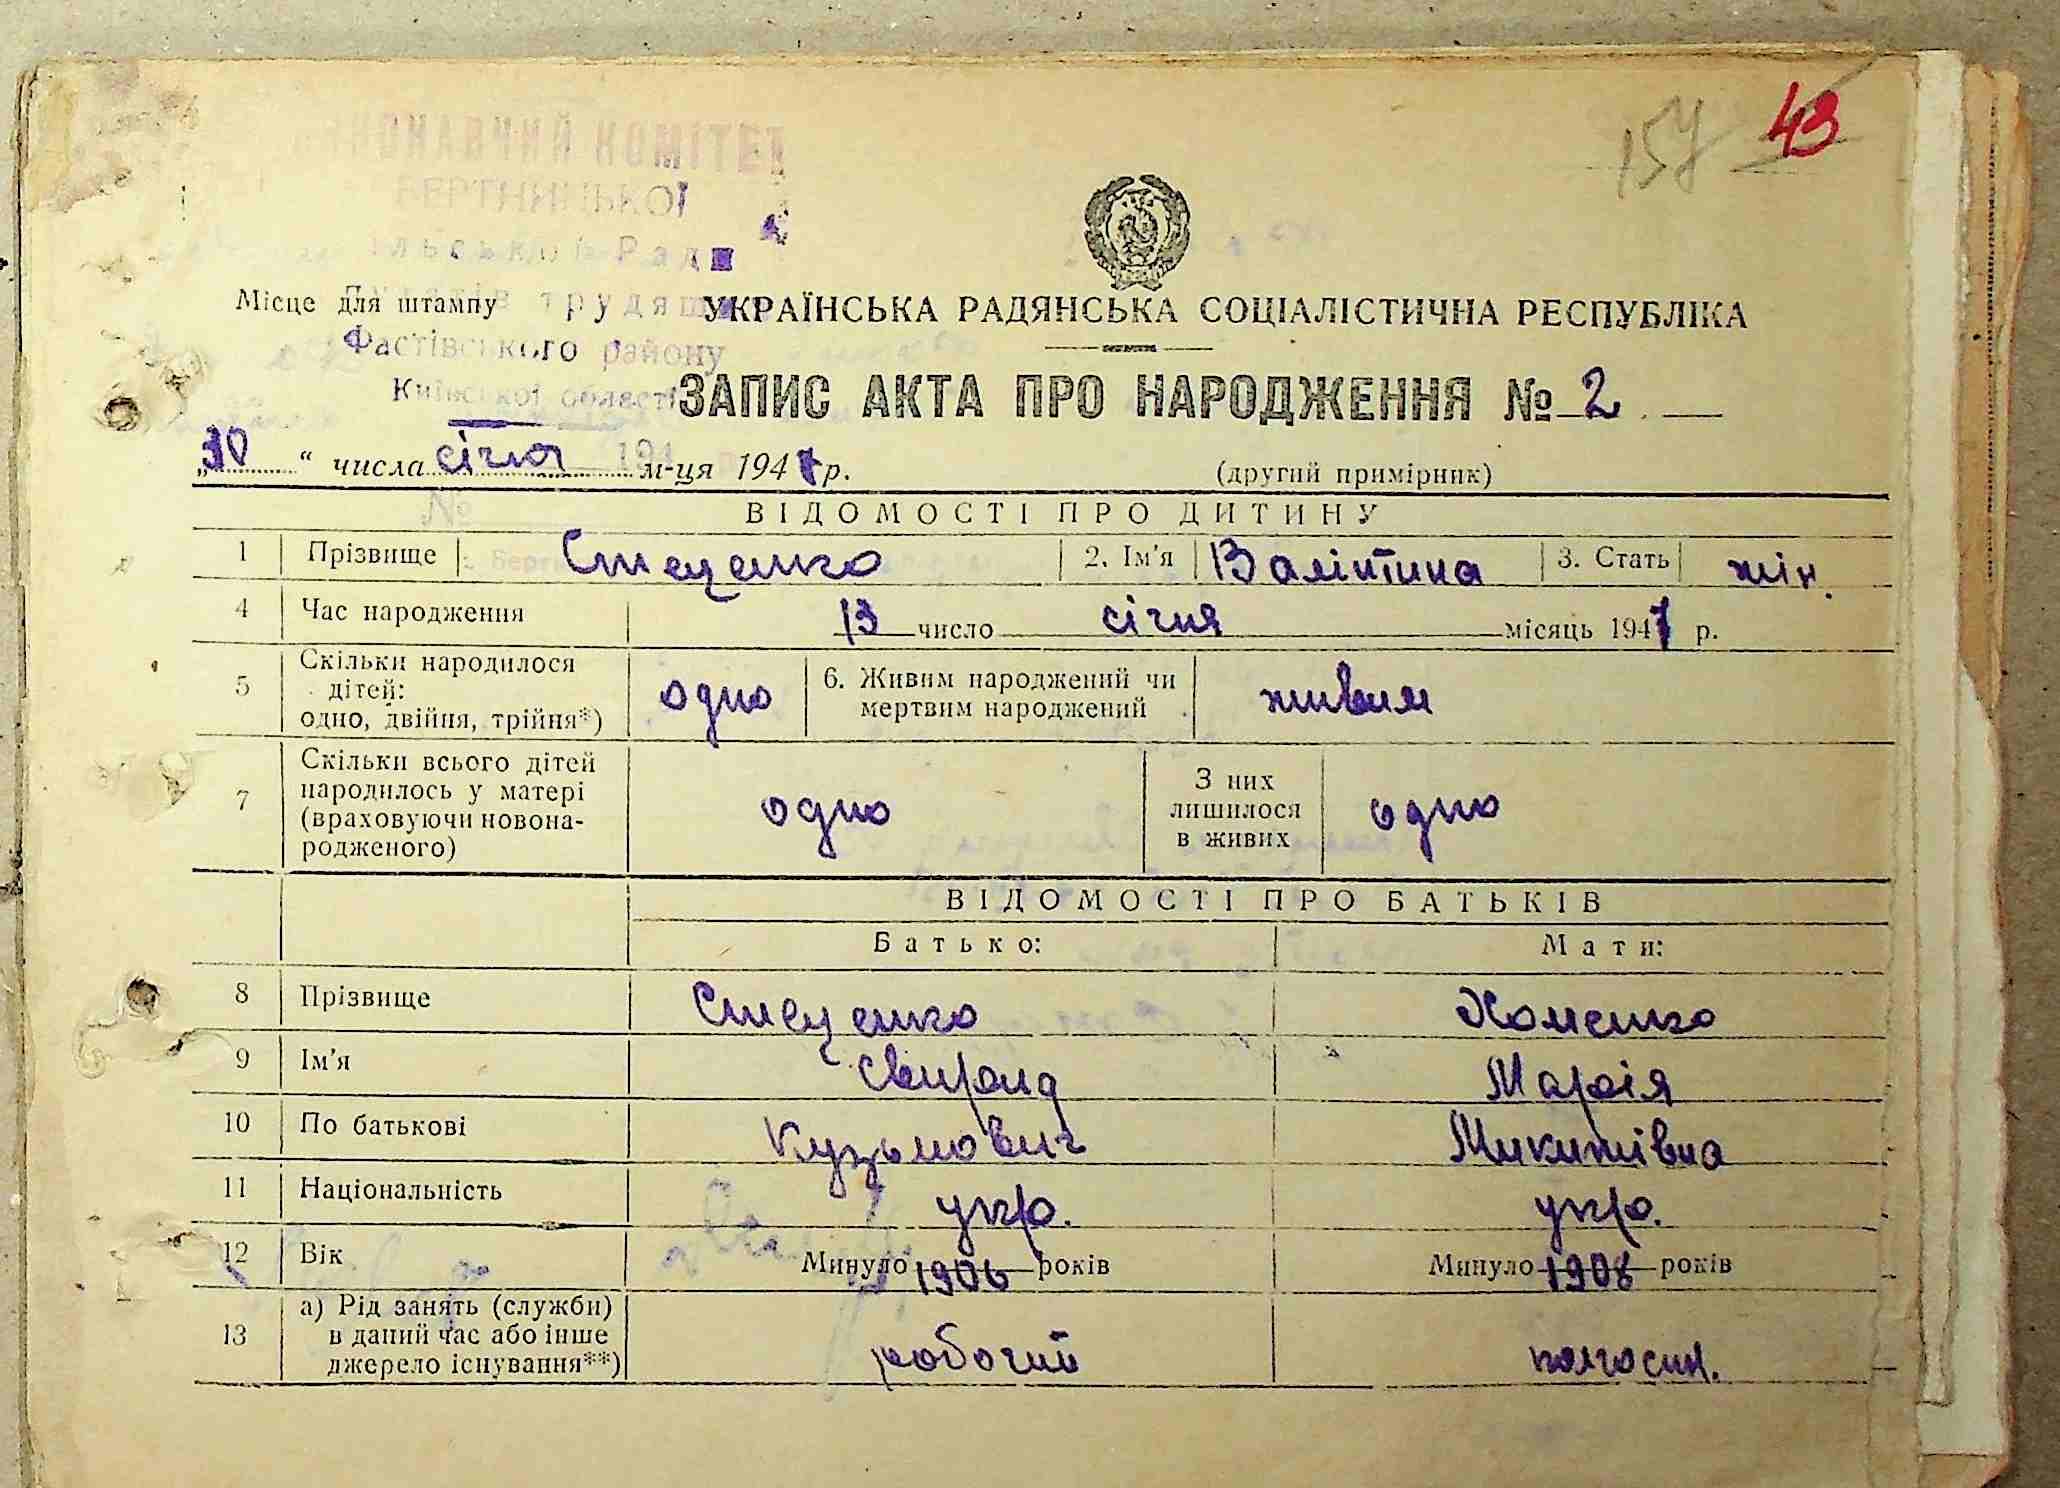 157 43
КОМІТЕТ
Місце для штампу
УКРАЇНСЬКА РАДЯНСЬКА СОЦІАЛІСТИЧНА РЕСПУБЛІКА
Фастівського району
Київської області
ЗАПИС АКТА ПРО НАРОДЖЕННЯ № 2
„30“ числа січня м-ця 1947 р.
(другий примірник)
№
ВІДОМОСТІ ПРО ДИТИНУ
1 Прізвище Стеценко 2. Ім'я Валінтина 3. Стать жін.
4 Час народження 13 число січня місяць 1947 р.
5 Скільки народилося дітей: одно, двійня, трійня*) одно 6. Живим народжений чи мертвим народжений живим
7 Скільки всього дітей народилось у матері (враховуючи новонародженого) одно З них лишилося в живих одно
ВІДОМОСТІ ПРО БАТЬКІВ
Батько: Мати:
8 Прізвище Стеценко Хоменко
9 Ім'я Свирид Марія
10 По батькові Кузьмович Микитівна
11 Національність укр. укр.
12 Вік Минуло 1906 років Минуло 1908 років
13 а) Рід занять (служби) в даний час або інше джерело існування**) робочий колгоспн.